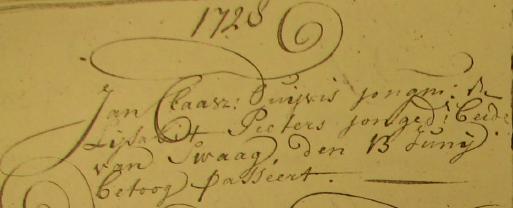 1728
Jan Claasz: Suijvis jongm: &
Lijsabet Pieters jonged: beide
van Swaag, den 13 Junij
betoog passeert.